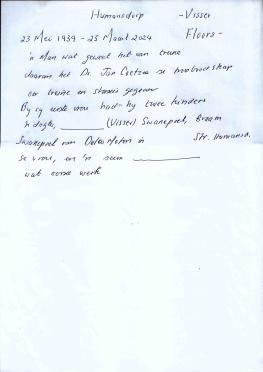 Humansdorp -Visser
23 Mei 1939 - 25 Maart 2024 Floors-
'n Man wat geweet het van treine
daarom het Ds. Jan Coetzee se troosboodskap
oor treine en stasies gegaan
By sy eerste vrou had hy twee kinders
'n dogter, ________ (Visser) Swanepoel, Braam
Swanepoel van Motors in Str. Humansd.
se vrou, en 'n seun ________
wat oorsee werk